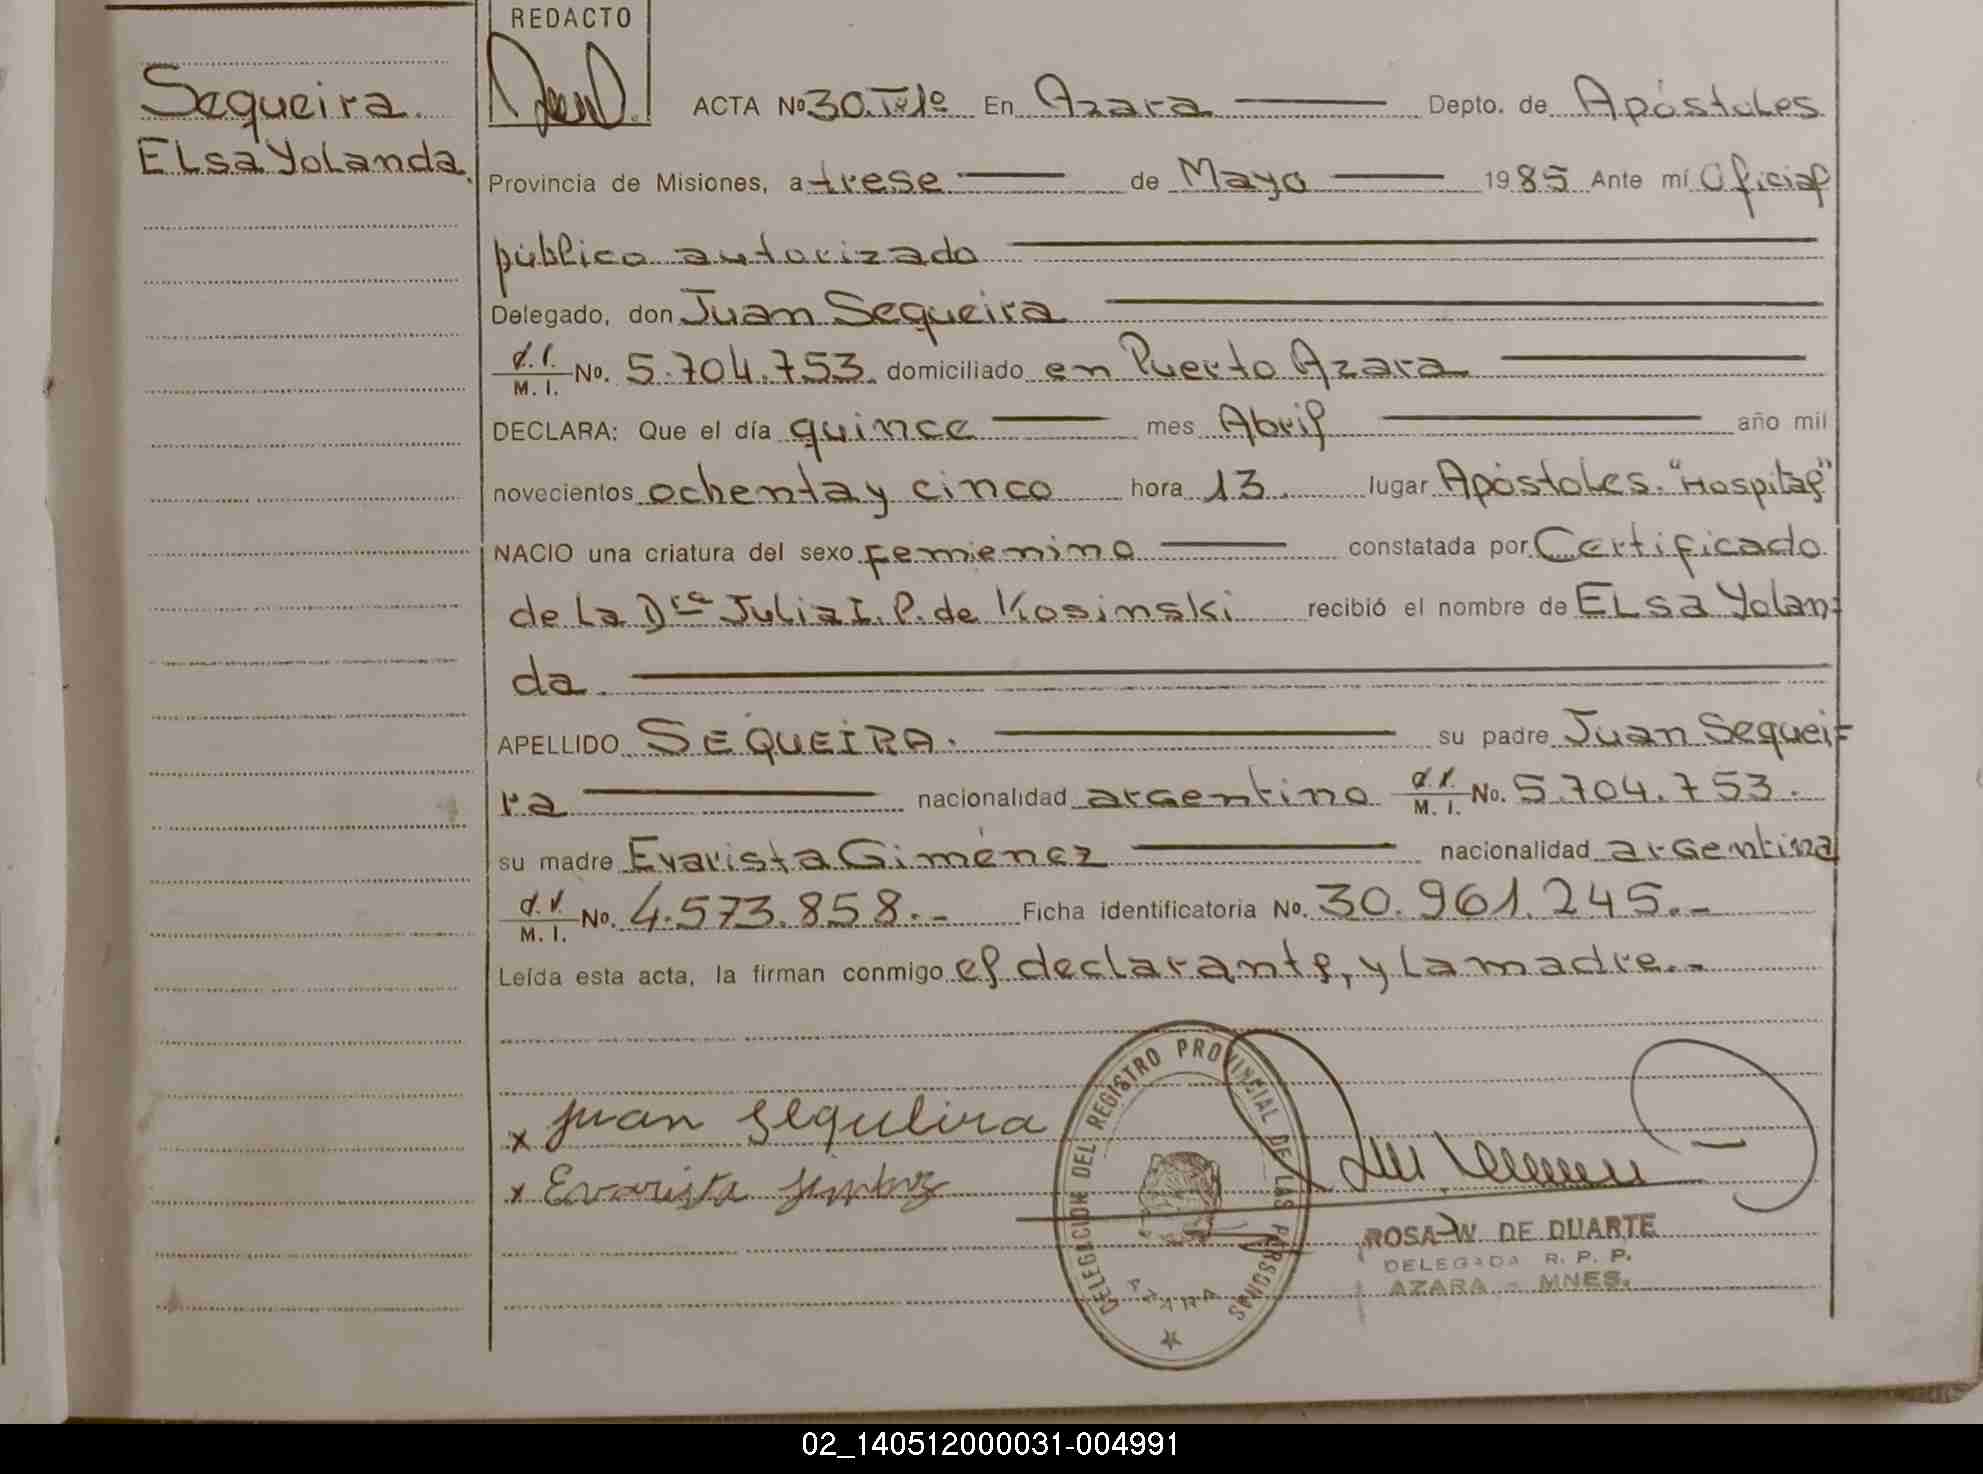 REDACTO
Sequeira
Elsa Yolanda.
ACTA Nº 30. Tº1º En Azara Depto. de Apóstoles
Provincia de Misiones, a trese de Mayo 1985 Ante mí Oficial
público autorizado
Delegado, don Juan Sequeira
M. I. No. 5.704.753. domiciliado en Puerto Azara
DECLARA: Que el día quince mes Abril año mil
novecientos ochenta y cinco hora 13. lugar Apóstoles. "Hospital"
NACIO una criatura del sexo femienino constatada por Certificado
de la Dra Julia I. P. de Kosinski recibió el nombre de Elsa Yolan-
da.
APELLIDO SEQUEIRA. su padre Juan Sequei-
ra nacionalidad argentino M. I. No. 5.704.753.
su madre Evarista Giménez nacionalidad argentina
M. I. No. 4.573.858.- Ficha identificatoria No. 30.961.245.-
Leída esta acta, la firman conmigo el declarante, y la madre.-
x Juan Sequeira
x Evarista Jimenez
DELEGACION DEL REGISTRO PROVINCIAL DE LAS PERSONAS
AZARA
ROSA W. DE DUARTE
DELEGADA R. P. P.
AZARA - MNES.
02_140512000031-004991